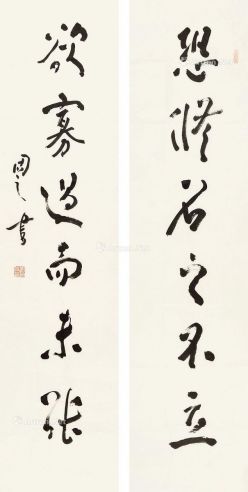 恐修名之不立
欲寡過而未能
周之書